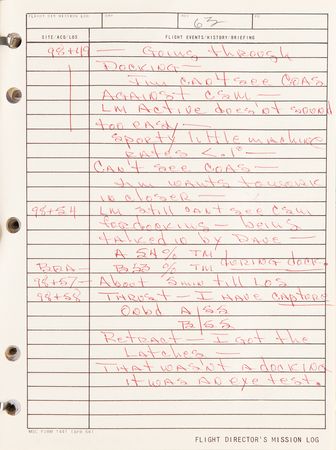 FLIGHT DIR MISSION LOG DAY 63 REV
SITE/ACQ/LOS FLIGHT EVENTS/HISTORY/BRIEFING
98+49 — Going through
Docking —
Jim can't see COAS
Against CSM —
LM Active doesn't sound
too easy —
sporty little machine
rates < .1° —
Can't see COAS —
Jim wants to work
in closer —
98+54 LM still can't see CSM
for docking — being
talked in by Dave —
A 54% TM
BDA — B 53% TM during dock.
98+57 — About 3 min till LOS
98+58 Thrust — I have capture
Obbd A ISS
B ISS
Retract — I got the
Latches —
That wasn't a docking
it was an eye test.
MSC FORM 1441 (APR 66)
FLIGHT DIRECTOR'S MISSION LOG